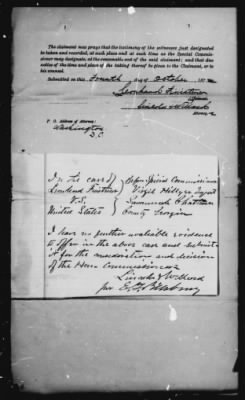 The claimant now prays that the testimony of the witnesses just designated
be taken and recorded, at such place and at such time as the Special Commis-
sioner may designate, at the reasonable cost of the said claimant; and that due
notice of the time and place of the taking thereof be given to the Claimant, or to
his counsel.
Submitted on this Fourth day of October 187
Claimant.
Lincoln & Willard
Attorney
P. O. Address of Attorney:
Washington
D.C.
In the case of
V.S. Savannah Chatham
United States County Georgia
I have no further available evidence
to offer in the above case and submit
it for the consideration and decision
of the Hon Commissioners
Lincoln & Willard
per